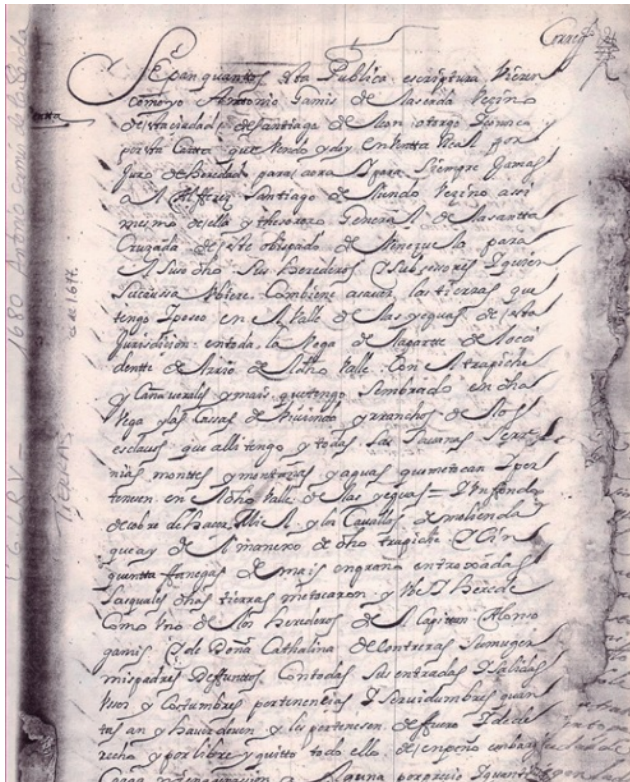 Sepan quantos esta Publica escriptura Vieren
como yo Antonio Gamis de la Scada Vezino
desta ciudad de Santiago de Leon otorgo y conosca
por esta Carta que Vendo y doy en Ventta Real por
Juro de heredad para aora y para siempre Jamas
a el Alferez Santiago de Liendo Vezino assi
mesmo de ella y thesorero General de la santta
Cruzada de este obispado de Venezuela para
el suso dho sus herederos y subsesores y quien
su caussa Vbiere Combiene asauer las tierras que
tengo y poseo en el Valle de las yeguas de esta
Jurisdision en toda la Vega de la partte de
dentte de el rrio de dho Valle Con el trapiche
y Cañaverales y mais que tengo sembrado en dha
Vega y las Cassas de Viuienda y rranchos de los
esclauos que alli tengo y todas las Sauanas serra
nias monttes y monterias y aguas que me tocan y per
tenesen en el dho Valle de las yeguas = y Vn fondo
de cobre de haser Miel y los Cauallos de molienda
que ay de el manexo de dho trapiche y Cin
quentta ffanegas de mais en grano entroxadas
las quales dhas tierras me tocaron y Vbe y herede
Como Vno de los herederos de el Capitan Alonso
gamis y de Doña Cathalina de Contreras su muger
mis padres Deffunttos Con todas sus entradas y salidas
Vsos y Costumbres pertenencias y seruidumbres quan
tas an y hauer deuen y les pertenesen de ffuero y de de
recho y por libre y quitto todo ello de enpeño enbar
1680 Antonio Gamis de la
TIERRAS